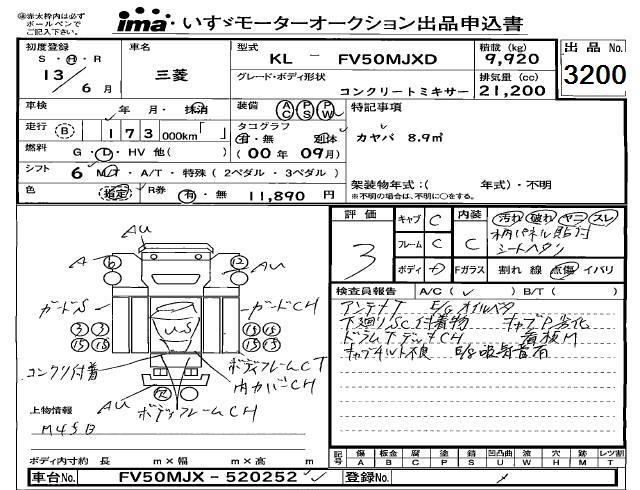 ㊟赤太枠内は必ず
ボールペンで
ご記入下さい。
ima いすゞモーターオークション出品申込書
初度登録 S・H・R 13/6月
車名 三菱
型式 KL - FV50MJXD
積載 (kg) 9,920
出品 No. 3200
グレード・ボディ形状 コンクリートミキサー
排気量 (cc) 21,200
車検 年 月・抹消
装備 AC PS PW
特記事項
走行 B 173 000km「 」
タコグラフ 有・無 別体
(00年 09月)
カヤバ 8.9㎥
燃料 G・D・HV 他( )
シフト 6 MT・A/T・特殊(2ペダル・3ペダル)
色 指定
R券 有・無 11,890 円
架装物年式:( 年式)・不明
※不明の場合は、不明に○をする。
評価 3
キャブ C
フレーム C
ボディ
内装 C
Fガラス
汚れ 破れ ヤニ スレ
柄パネル貼付
シートヘタリ
割れ 線 点傷 イバリ
検査員報告 A/C( ✓ ) B/T( )
アンテナT E/gオイルベタ
下廻りSC付着物 キャブP劣化
ドラムTデッチCH 看板M
キャブチルト不良 E/g吸気音有
AU
A 6 12 AU
ガードS
ガードCH
US
3 3
15 15
15 15
15 15
コンクリ付着
ボディフレームCT
内カバーCH
AU
ボディフレームCH
上物情報
M45B
ボディ内寸約 長 m×幅 m×高 m
記号 傷A 板金B 腐C 塗P 錆S 凹凸曲U 波W 穴H 跡M レツ割T
車台No. FV50MJX-520252
登録No.